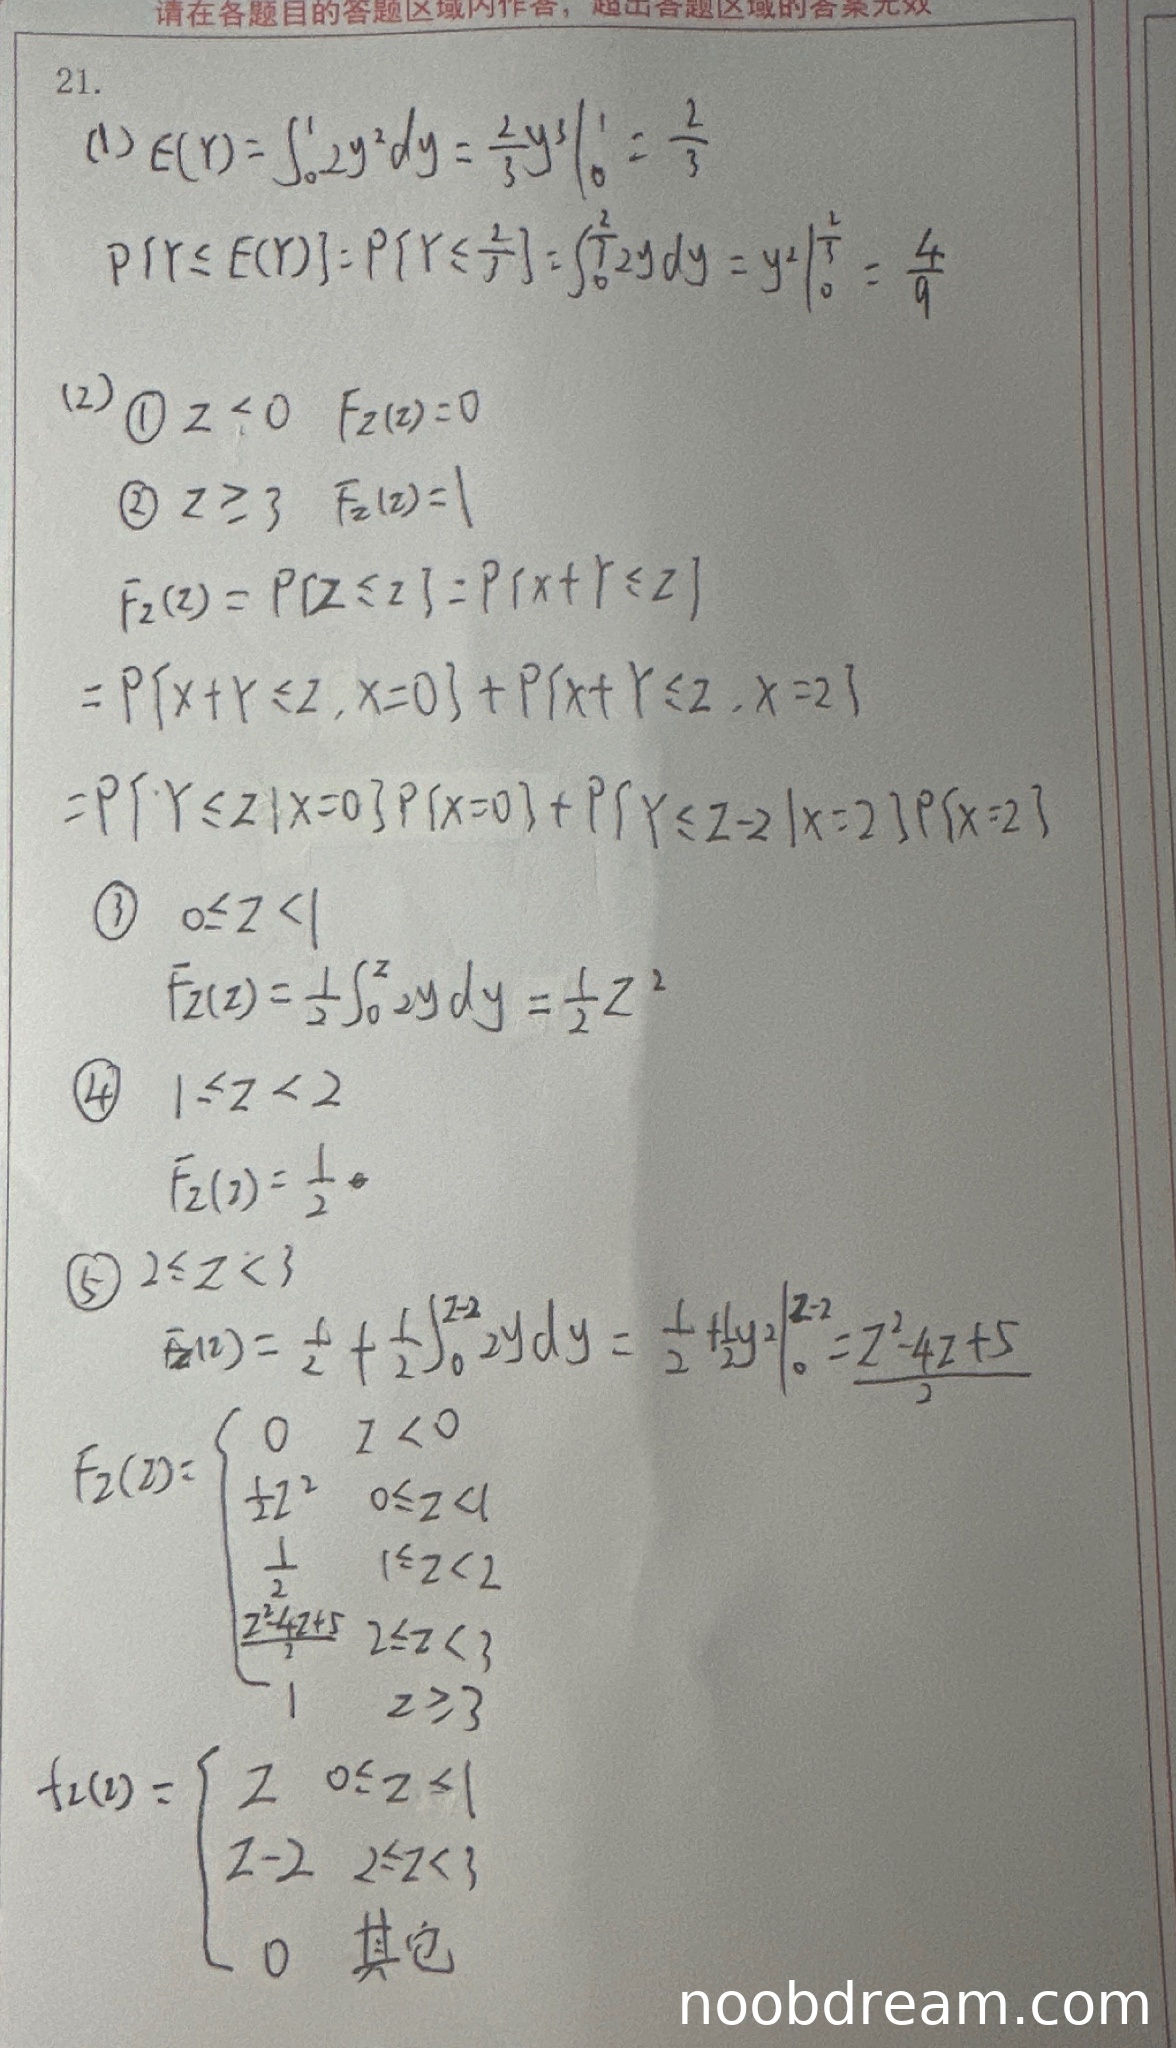 请在各题目的答题区域内作答，超出各题区域的答案无效
21.
(1) E(Y) = ∫₀¹ 2y² dy = 2/3 y³ |₀¹ = 2/3
P{Y ≤ E(Y)} = P{Y ≤ 2/3} = ∫₀^(2/3) 2y dy = y² |₀^(2/3) = 4/9
(2) ① Z < 0 F_Z(Z) = 0
② Z ≥ 3 F_Z(Z) = 1
F_Z(Z) = P{Z ≤ z} = P{X+Y ≤ Z}
= P{X+Y ≤ Z, X=0} + P{X+Y ≤ Z, X=2}
= P{Y ≤ Z|X=0}P{X=0} + P{Y ≤ Z-2|X=2}P{X=2}
③ 0 ≤ Z < 1
F_Z(Z) = 1/2 ∫₀^Z 2y dy = 1/2 Z²
④ 1 ≤ Z < 2
F_Z(Z) = 1/2
⑤ 2 ≤ Z < 3
F_Z(Z) = 1/2 + 1/2 ∫₀^(Z-2) 2y dy = 1/2 + 1/2 y² |₀^(Z-2) = (Z²-4Z+5)/2
F_Z(Z) = { 0 Z < 0
1/2 Z² 0 ≤ Z < 1
1/2 1 ≤ Z < 2
(Z²-4Z+5)/2 2 ≤ Z < 3
1 Z ≥ 3
f_Z(Z) = { Z 0 ≤ Z ≤ 1
Z-2 2 ≤ Z < 3
0 其它
noobdream.com